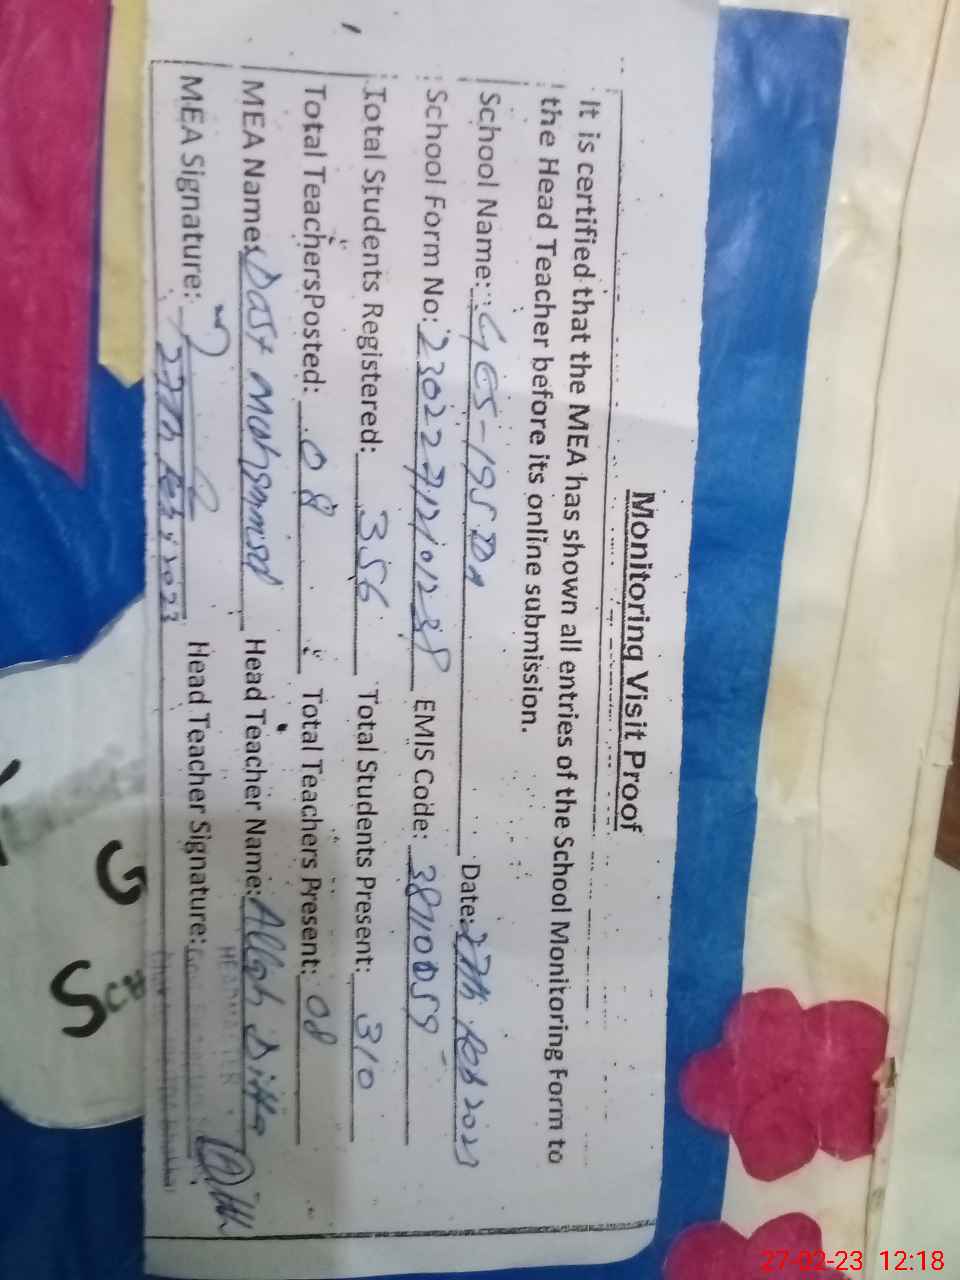 Monitoring Visit Proof
It is certified that the MEA has shown all entries of the School Monitoring Form to
the Head Teacher before its online submission.
School Name: GES-195 Date: 27th Feb 2023
School Form No: EMIS Code: 38710059
Total Students Registered: 356 Total Students Present: 310
Total TeachersPosted: 08 Total Teachers Present: 08
MEA Name: Dast Muhammad Head Teacher Name: Allah Ditta
MEA Signature: 27th Feb, 2023 Head Teacher Signature:
HEADMASTER
G
SCH
27-02-23 12:18